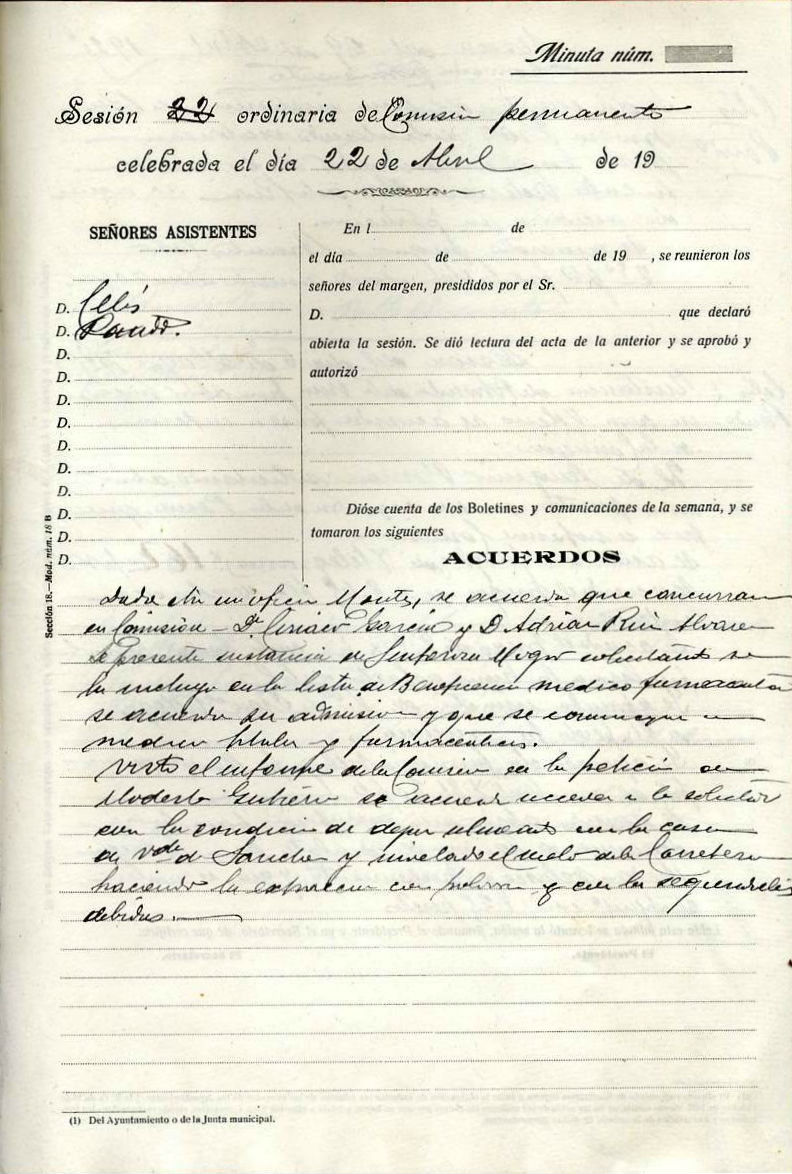 Minuta núm.
Sesión 22 ordinaria de Comisión permanente
celebrada el día 22 de Abril de 19
SEÑORES ASISTENTES
D. Celis
D. Pando.
D.
D.
D.
D.
D.
D.
D.
D.
D.
D.
En l de
el día de de 19 , se reunieron los
señores del margen, presididos por el Sr.
D. que declaró
abierta la sesión. Se dió lectura del acta de la anterior y se aprobó y
autorizó
Dióse cuenta de los Boletines y comunicaciones de la semana, y se
tomaron los siguientes
ACUERDOS
Dada Montes, se acuerda que concurran
en Comisión – D. Ciriaco García y D Adrián Alvarez
Se presente instancia de solicitando se
la incluya en la lista de Beneficencia medico farmaceutica
se acuerda su admision y que se comunique a
medico titular y farmacéuticos.
Visto el informe de la Comision en la petición de
Modesto Gutiérrez se acuerda acceder a lo solicitado
con la condicion de dejar con la casa
de Vda de Sanchez y nivelado el suelo de la Carretera
haciendo la extraccion con y con las seguridades
debidas.
Sección 18.—Mod. núm. 18 B
(1) Del Ayuntamiento o de la Junta municipal.